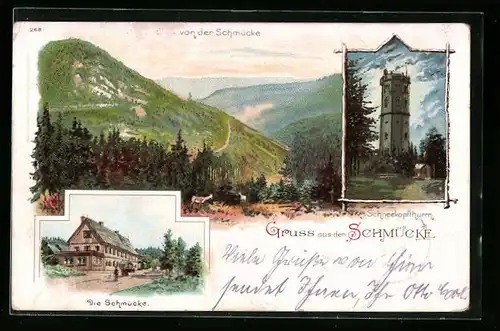 268
von der Schmücke
Schneekopfthurm
Gruss aus der SCHMÜCKE.
Die Schmücke.
Viele Grüße von hier
sendet Ihnen, Ihr Otto